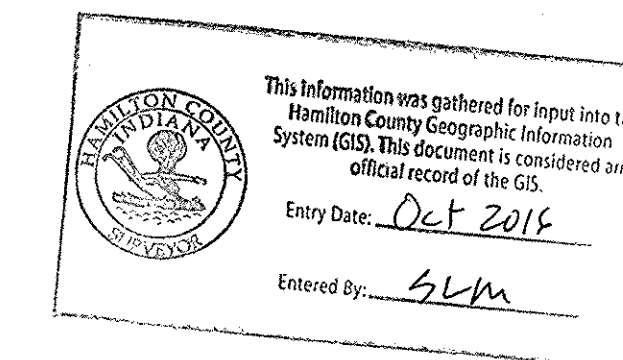 HAMILTON COUNTY
INDIANA
SURVEYOR
This information was gathered for input into t
Hamilton County Geographic Information
System (GIS). This document is considered an
official record of the GIS.
Entry Date: Oct 2016
Entered By: SLM